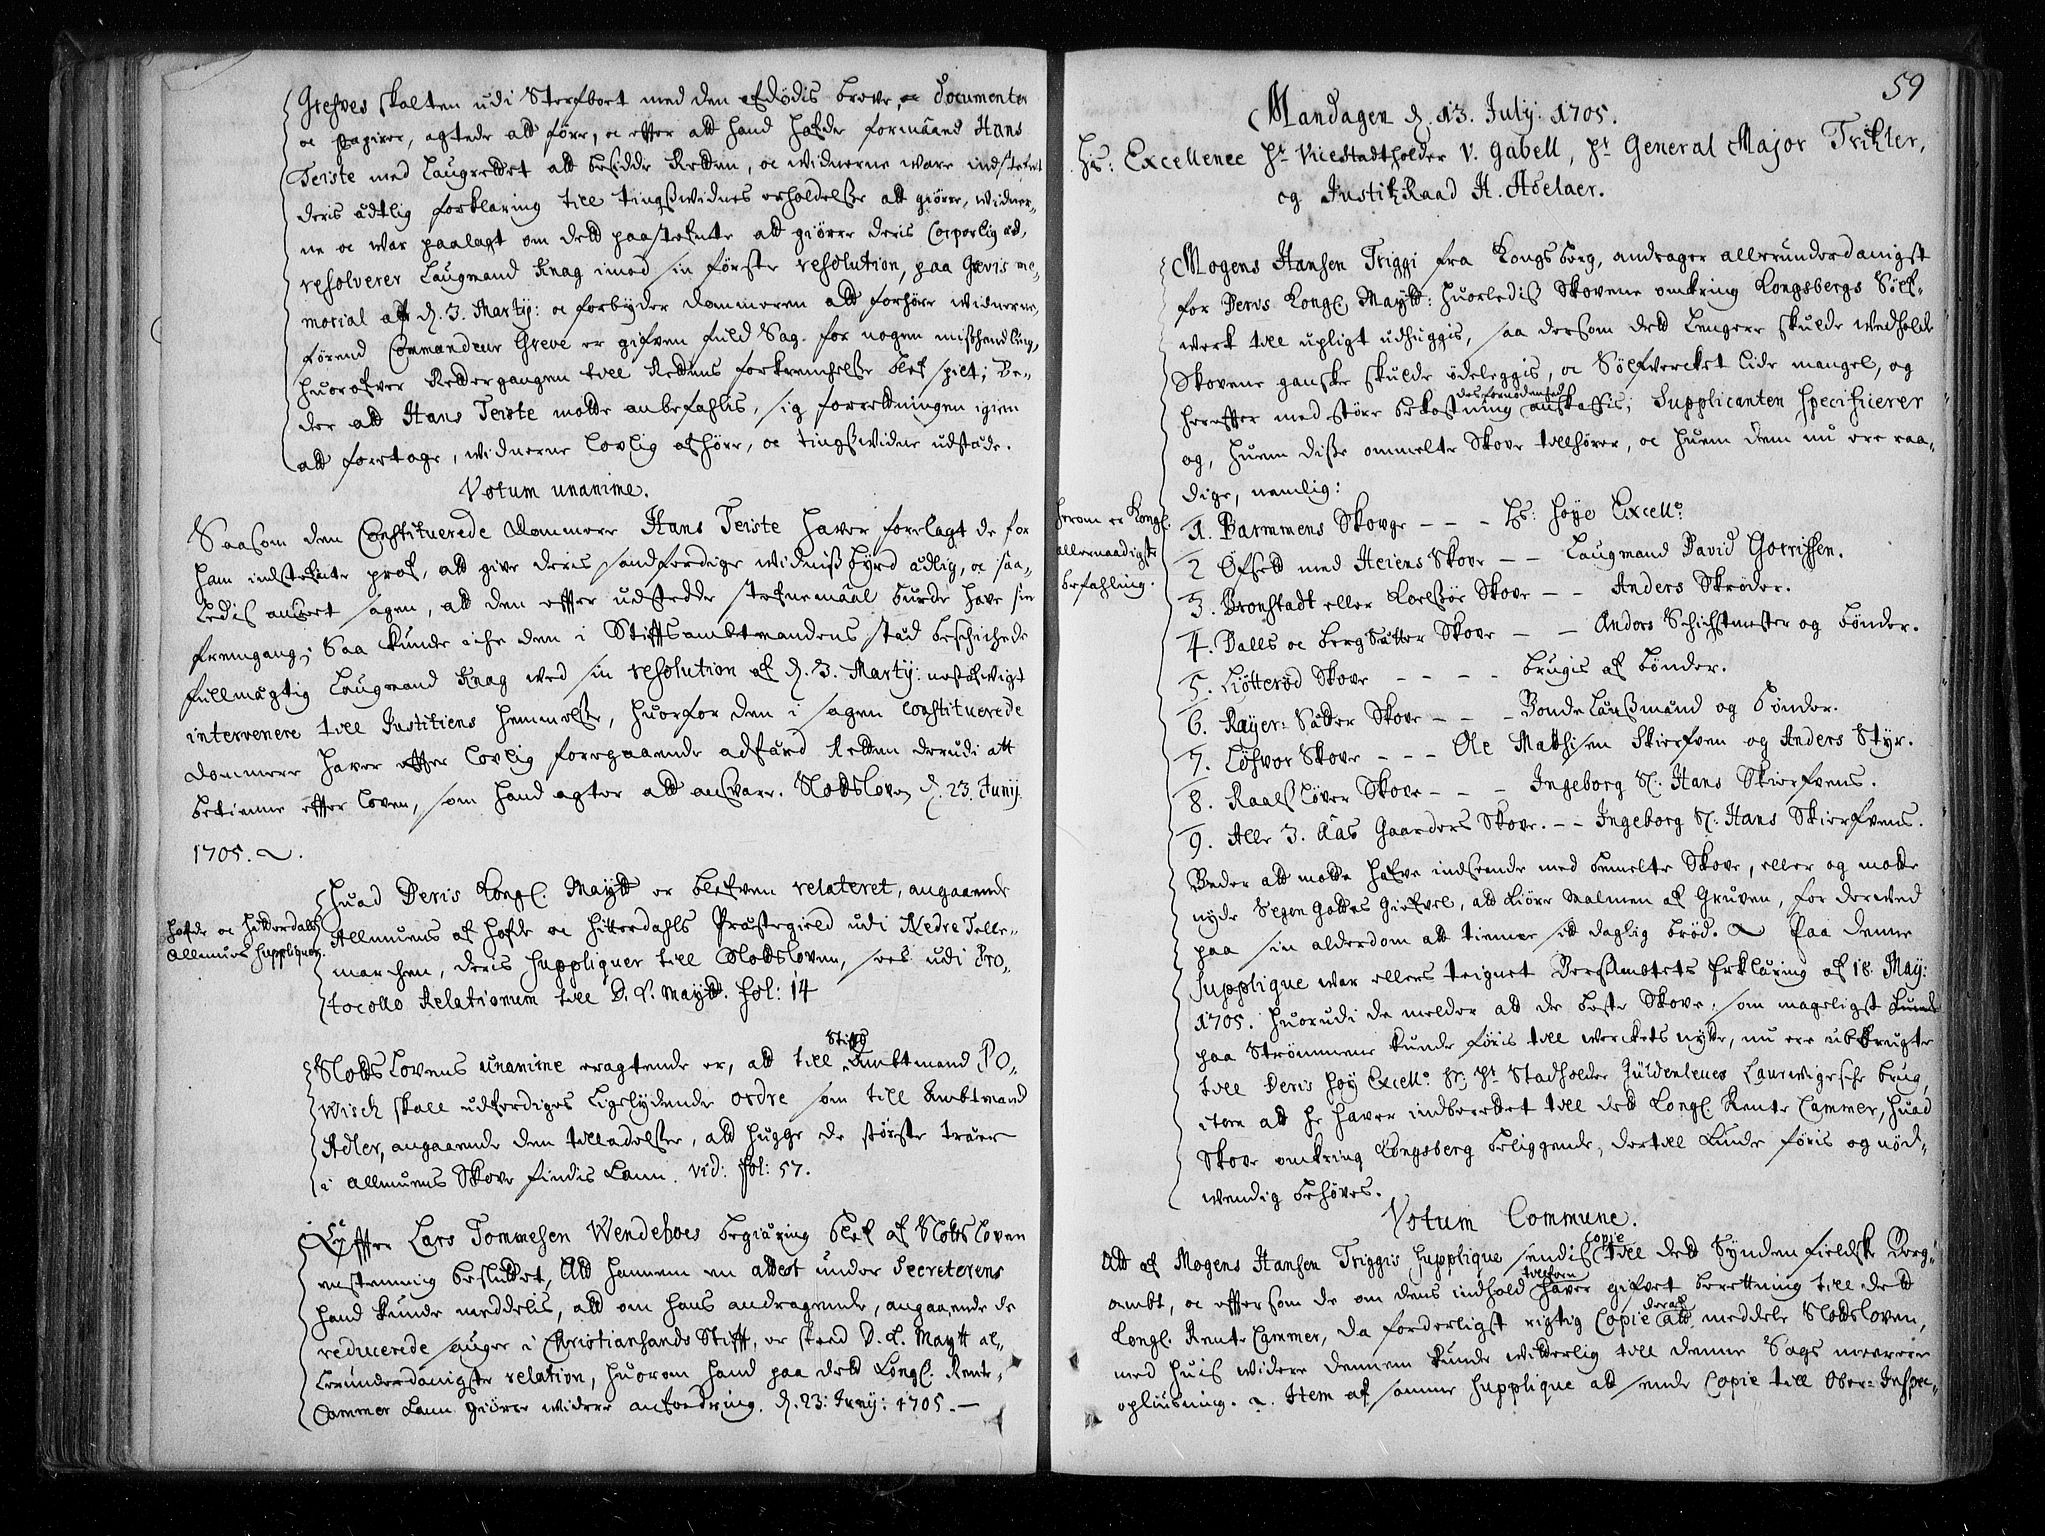 Grefves skalten udi Sterfboet med den afdødis breve, oc documenter
oc papirer, agtede att føre, oc effter att hand hafde formaaend Hans
Teiste med Laugrettet att besidde Retten, oc widnerne ware indstefnet
deris ædtlig forklaring till tingßwidnes erholdelße att giøre, widner-
ne oc war paalagt om dett paastefnte att giøre deris Corporlig æd,
resolverer Laugmand Knag imod sin første resolution, paa Grevis me-
morial aff d. 3. Martij: oc forbyder dommeren att forhøre widnerne,
førend Commandeur Greve er gifven fuld Sag for nogen mißhandling,
huorofver Rettergangen till Rettens forkrenchelße blef spilt; Be-
der att Hans Teiste motte anbefahlis, sig forretningen igien
att foretage, widnerne lovlig afhøre, oc tingßwidne udstæde.
Votum unanime.
Saasom den Constituerede dommere Hans Teiste haver forelagt de for
ham indstefnte prof, att give deris sandferdige widnißbyrd ædlig, oc saa-
ledis anseet sagen, att den effter udstedde stefnemaal burde have sin
fremgang; Saa kunde iche den i Stifftsambtmandens stæd beschichede
fuldmægtig Laugmand Knag wed sin resolution af d. 3. Martij:
intervenere till Justitiens hemmelße, huorfor den i sagen Constituerede
dommere haver effter lovlig foregaaende adfærd Retten derudi att
betienne effter loven, som hand agter att ansvare. Slottsloven d. 23. Junij.
1705.
Hofde oc Hitterdahls
Allmues suppliquer.
Huad Deris Kongl. Maytt er blefven relateret, angaaende
Allmuens af Hofde oc Hitterdahls Præstegield udi Nedre Telle-
marchen, deris suppliquer till Slottsloven, sees udi Pro-
tocollo Relationum till D. K. Maytt. fol: 14
Slotts Lovens unanime eragtende er, att till Stiffts Ambtmand Po-
wisch skall udferdiges ligelydende ordre som till Ambtmand
Adler, angaaende den tilladelße, att hugge de største træer
i allmuens Skove findis kann. vid: fol: 57.
Effter Lars Tommesen Wendelboes begiæring blef af Slotts Loven
enstemmig besluttet, Att hannem en attest under Secreterens
hand kunde meddelis, att om hans andragende, angaaende de
reducerede sauger i Christiansands Stifft, er skeed D. K. Maytt al-
lerunderdanigste relation, huorom hand paa dett Kongl. Rente-
Cammer kann giøre widere ansøedring. d. 23: Junij: 1705. —
59
Mandagen d. 13. July. 1705.
Hs: Excellence Hr Vicestadtholder V. Gabell, Hr General Major Trihler,
og JustitzRaad H. Adelaer.
Herom er Kongl.
allernaadigste
befahling.
Mogens Hansen Triggi fra Kongsberg, andrager allerunderdanigst
for Deris Kongl. Maytt: huorledis Skovene omkring Kongsbergs Sølf-
werk till upligt udhuggis, saa dersom dett lengere skulde wedholde
Skovene ganske skulde ødeleggis, oc Sølfvercket lide mangel, og
hereffter med større bekostning des fornødenhed anskaffis; Supplicanten specificerer
og, huem diße ommelte Skove tillhører, oc huem dem nu ere raa-
dige, nemlig:
1. Barmmens Skovge - - - Hs: høye Excell:
2 Øfsett med Heiens Skove - - Laugmand David Goerißen.
3. Bronstadt eller Koelßiør Skove - - Anders Skrøder.
4. Dalls oc bergsætter Skove - - Anders Schichtmester og bønder.
5. Liøtterød Skove - - - - brugis af bønder.
6. Rayer: Sætter Skove - - - Bonde Lænßmand og bønder.
7. Løhvor Skove - - - Ole Mathisen Skierfven og Anders Styr.
8. Raalßløver Skove - - - Ingeborg Sl. Hans Skierfvens.
9. Alle 3. Aas Gaarders Skove. - - Ingeborg Sl. Hans Skierfvens.
Beder att motte hafve indseende med bemelte Skove, eller og motte
nyde Segen Gottes Giefvel, att kiøre Malmen af Gruven, for derwed
paa sin alderdom att tienne sit daglig brød. Paa denne
Supplique war ellers teignet Bergambtets Erklæring af 18. May:
1705. huorudi de melder att de beste Skove, som mageligst kunde
paa Strømmene kunde føris till werckets nytte, nu ere ubbrugte
till Deris høy Excell: Hr. Hr Stadholder Güldenleues Laurwigesche brug,
item att he haver indberettet till dett Kongl. Rente Cammer, huad
Skove omkring Kongsberg beliggende, dertil kunde føris og nød-
wendig behøves.
Votum Commune.
Att af Mogens Hansen Triggis Supplique sendis Copie till dett Syndenfieldske Berg-
ambt, oc effterson de om dens indhold tillforn haver gifvet berettning till dett
Kongl. Rente Cammer, da forderligst rigtig Copie deraf att meddele Slottsloven,
med huis widere dennem kunde witterlig till denne Sags meerere
oplüsning. Item af samme Supplique att sende Copie till Ober-Inspec-